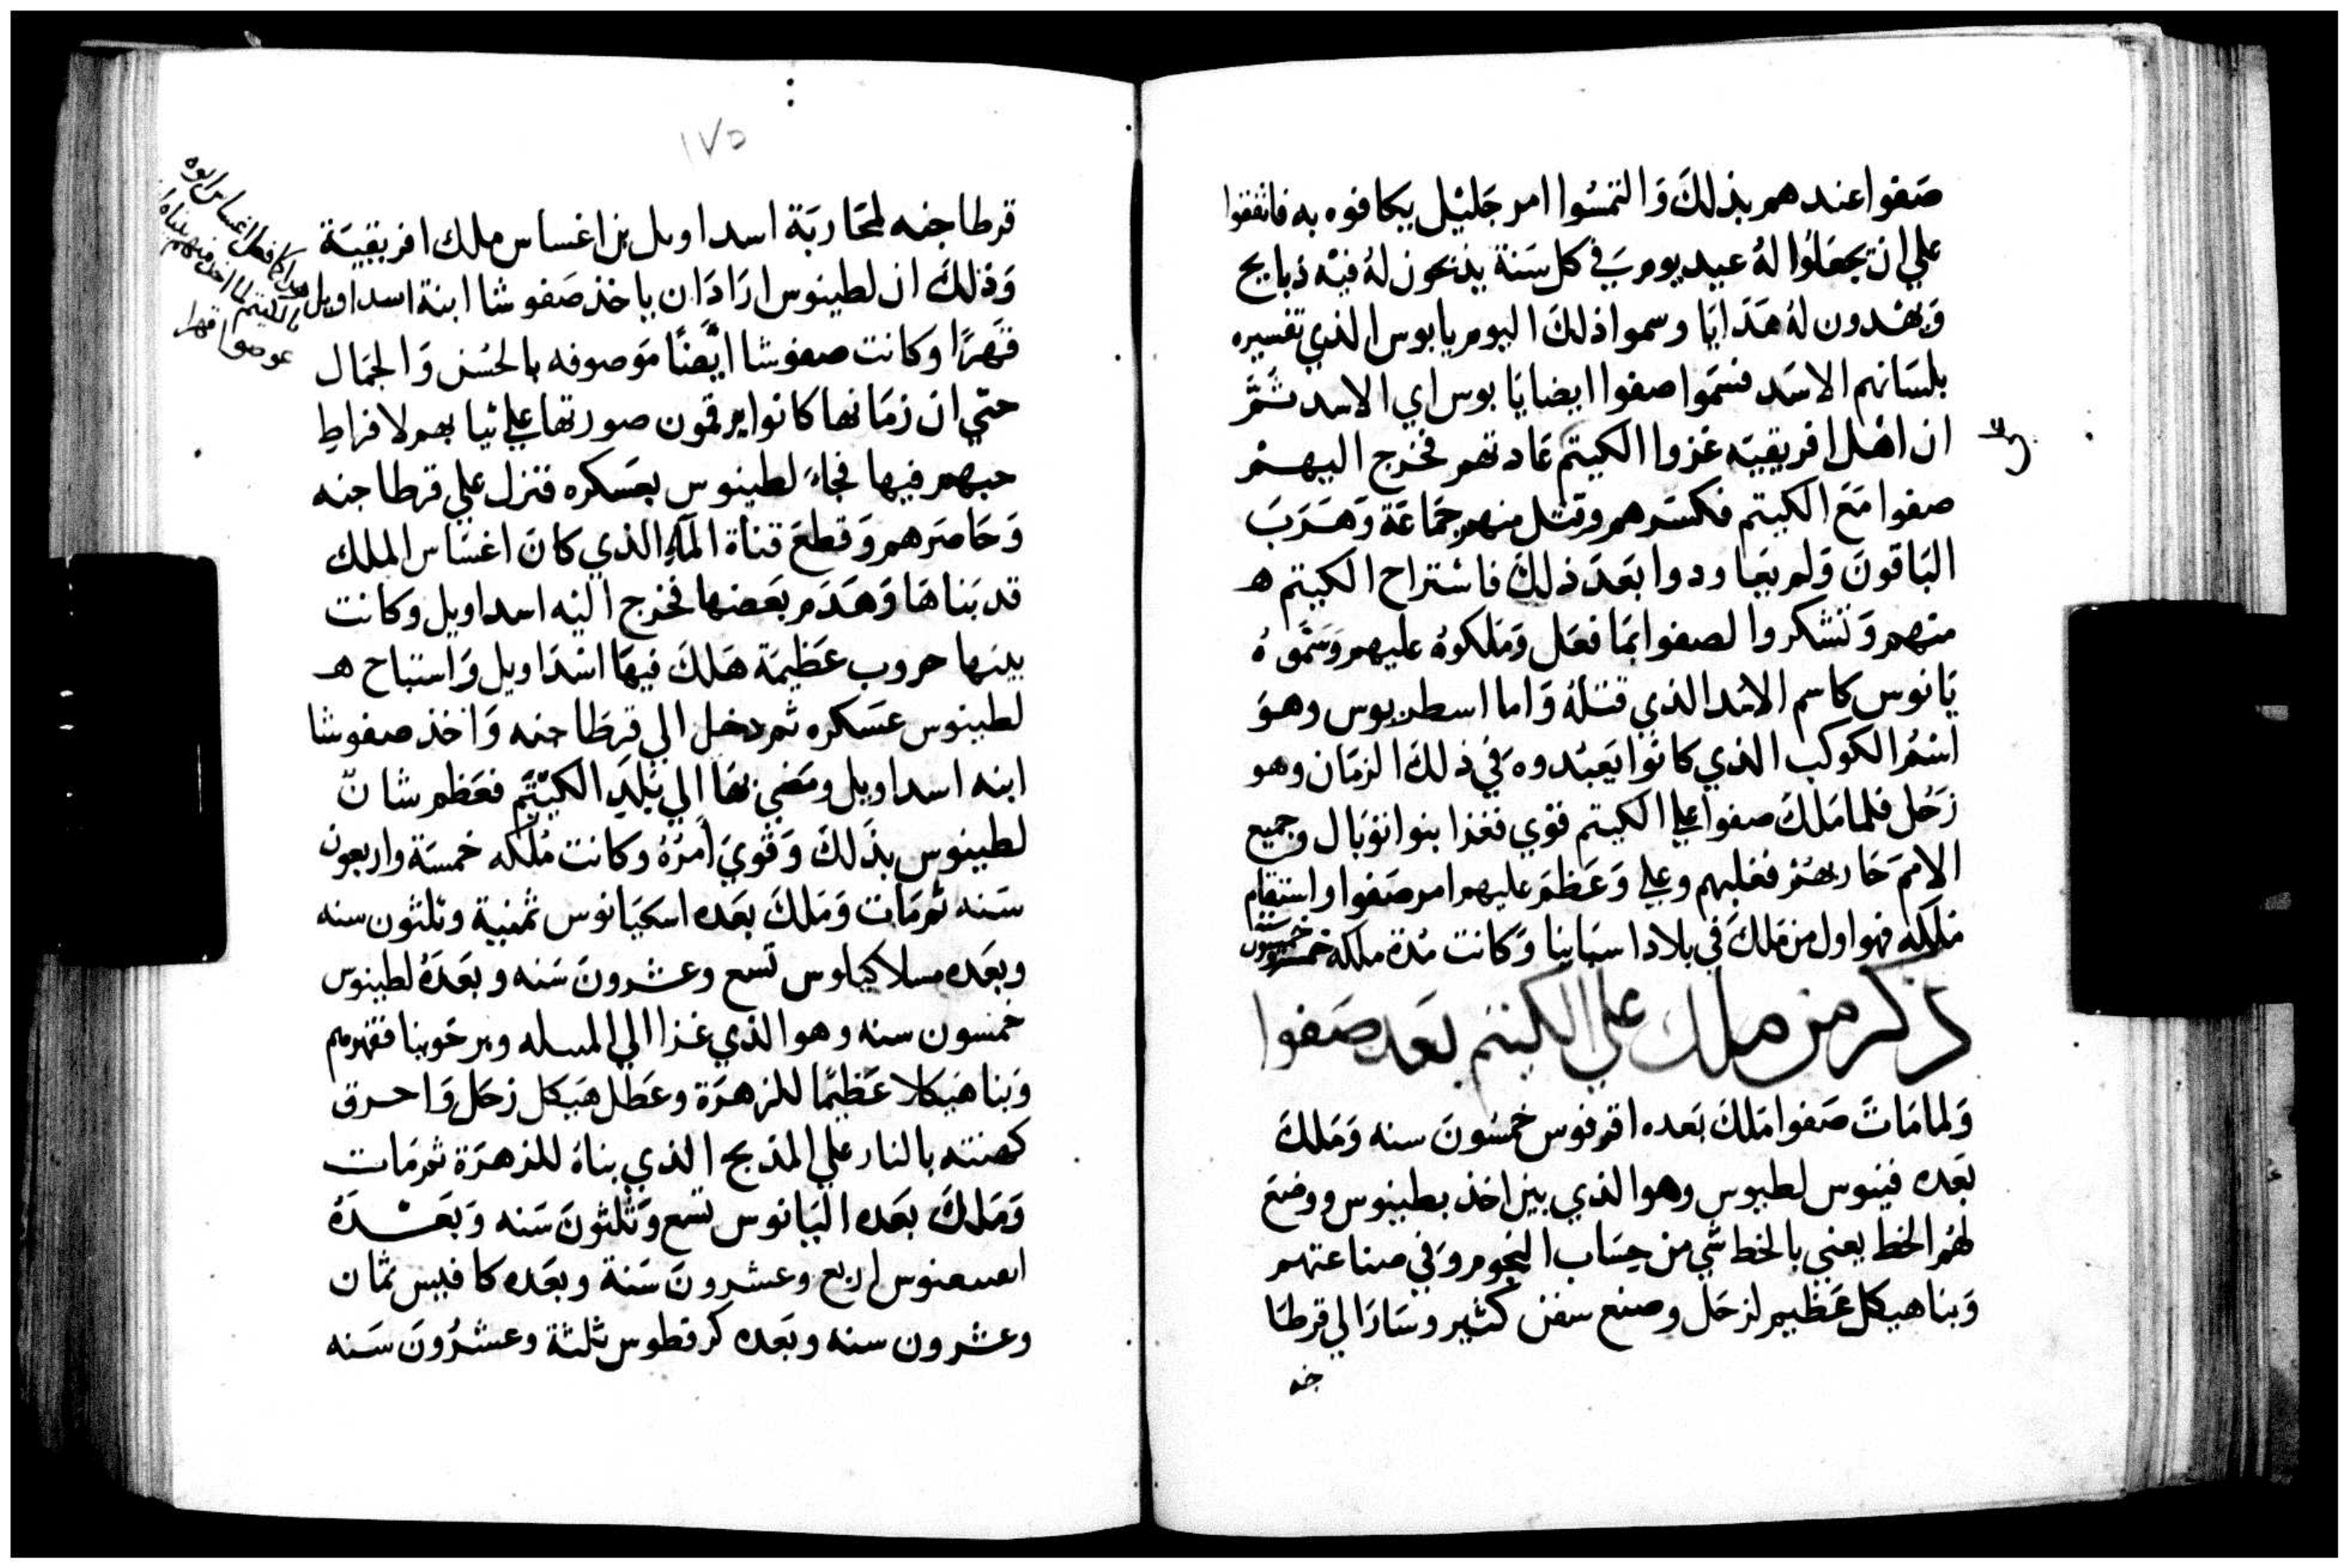 صفوا عندهم بذلك والتمسوا امر جليل يكافوه به فاتفقوا
علي ان يجعلوا له عيد يوم في كل سنة يذبحون له فيه ذبايح
ويهدون له هدايا وسموا ذلك اليوم يابوس الذي تفسيره
بلسانهم الاسد فسموا صفوا ايضا يابوس اي الاسد ثم
ان اهل افريقيه غزوا الكيتم عادتهم فخرج اليهم
صفوا مع الكيتم فكسرهم وقتل منهم جماعة وهرب
الباقون ولم يعاودوا بعد ذلك فاستراح الكيتم ه
منهم وتشكروا لصفوا بما فعل وملكوه عليهم وسموه
يانوس كاسم الاسد الذي قتله واما اسطربوس وهو
اسم الكوكب الذي كانوا يعبدوه في ذلك الزمان وهو
زحل فلما ملك صفوا علي الكيتم قوي فغزا بنوا توبال وجميع
الامم حاربهم فغلبهم وعلي وعظم عليهم امر صفوا واستقام
ملكه فهو اول من ملك في بلاد اسبانيا وكانت مدة ملكه خمسون سنة
ذكر من ملك علي الكيتم بعد صفوا
ولما مات صفوا ملك بعده اقرفوس خمسون سنه وملك
بعده فينوس لطيوس وهو الذي بين اخذ بطينوس ووضع
لهم الخط يعني بالخط شي من حساب النجوم وفي صناعتهم
وبنا هيكل عظيم لزحل وصنع سفن كثير وسار الي قرطا
جنه
١٧٥
قرطاجنه لمحاربة اسداويل بن اغساس ملك افريقية
وذلك ان لطينوس اراد ان ياخذ صفوشا ابنة اسداويل
قهرا وكانت صفوشا ايضا موصوفه بالحسن والجمال
حتي ان زمانها كانوا يرقمون صورتها علي ثيابهم لافراط
حبهم فيها فجاء لطينوس بعسكره فنزل علي قرطاجنه
وحاصرهم وقطع قناة الماء الذي كان اغساس الملك
قد بناها وهدم بعضها فخرج اليه اسداويل وكانت
بينهما حروب عظيمة هلك فيها اسداويل واستباح ه
لطينوس عسكره ثم دخل الي قرطاجنه واخذ صفوشا
ابنه اسداويل ومضي بها الي بلد الكيتم فعظم شان
لطينوس بذلك وقوي امره وكانت ملكه خمسة واربعون
سنه ثم مات وملك بعده اسكيانوس ثمنية وثلثون سنه
وبعده مسلاكياوس تسع وعشرون سنه وبعده لطينوس
خمسون سنه وهو الذي غزا الي المسله وبرغونيا فقهرهم
وبنا هيكلا عظيما للزهرة وعطل هيكل زحل واحرق
كهنته بالنار علي المذبح الذي بناه للزهرة ثم مات
وملك بعده اليانوس تسع وثلثون سنه وبعده
اربع وعشرون سنة وبعده كافيس ثمان
وعشرون سنه وبعده كرقطوس ثلثة وعشرون سنه
كما فعل اغساس ابوه
بالكيتم لما اخذ منهم
قهرا